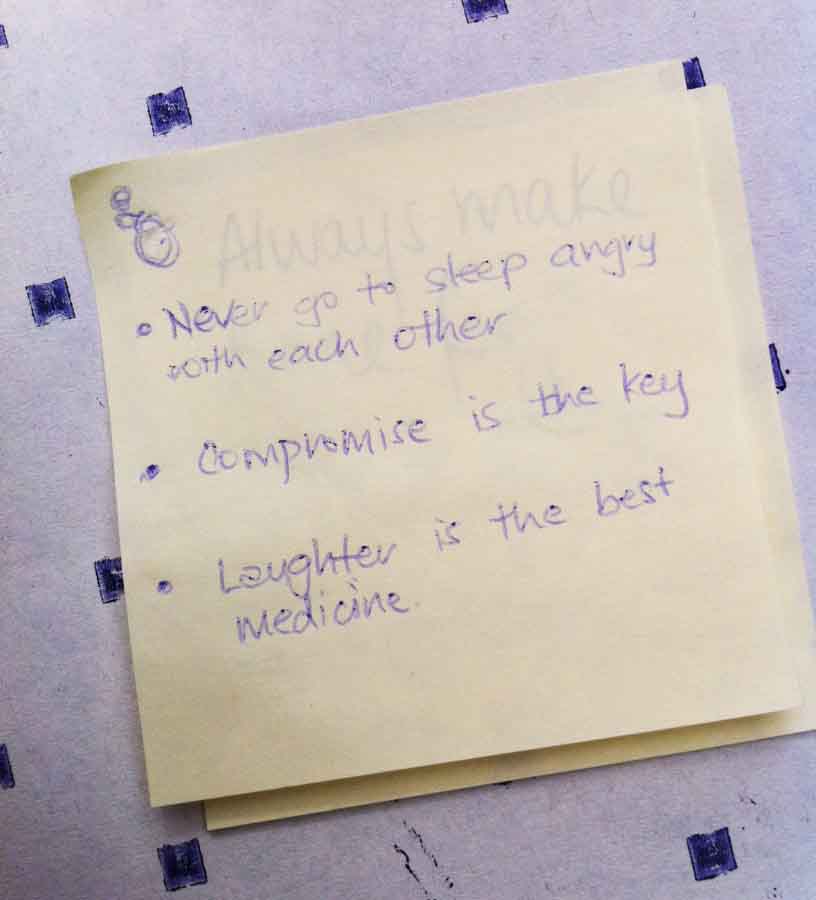 Always make
• Never go to sleep angry
with each other
• Compromise is the key
• Laughter is the best
medicine.